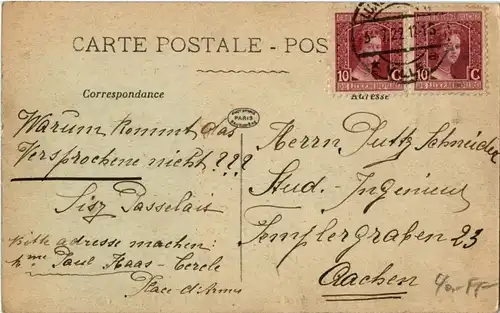 CARTE POSTALE - POS
Correspondance
Adresse
10 C
10 C
PARIS
Warum kommt das
Versprochene nicht???
Sisy Passelais
bitte adresse machen:
Mme Paul Haas-Cercle
Place d'Armes
Herrn Schneider
Stud. Ingenieur
Templergraben 23
Aachen